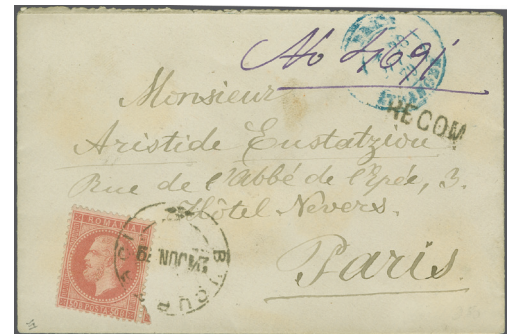 No 4691
RECOM
Monsieur
Aristide Eustatziou
Rue de l'Abbé de l'Epée, 3.
Hôtel Nevers.
Paris
ROMANIA
BUCUR
JUN 79